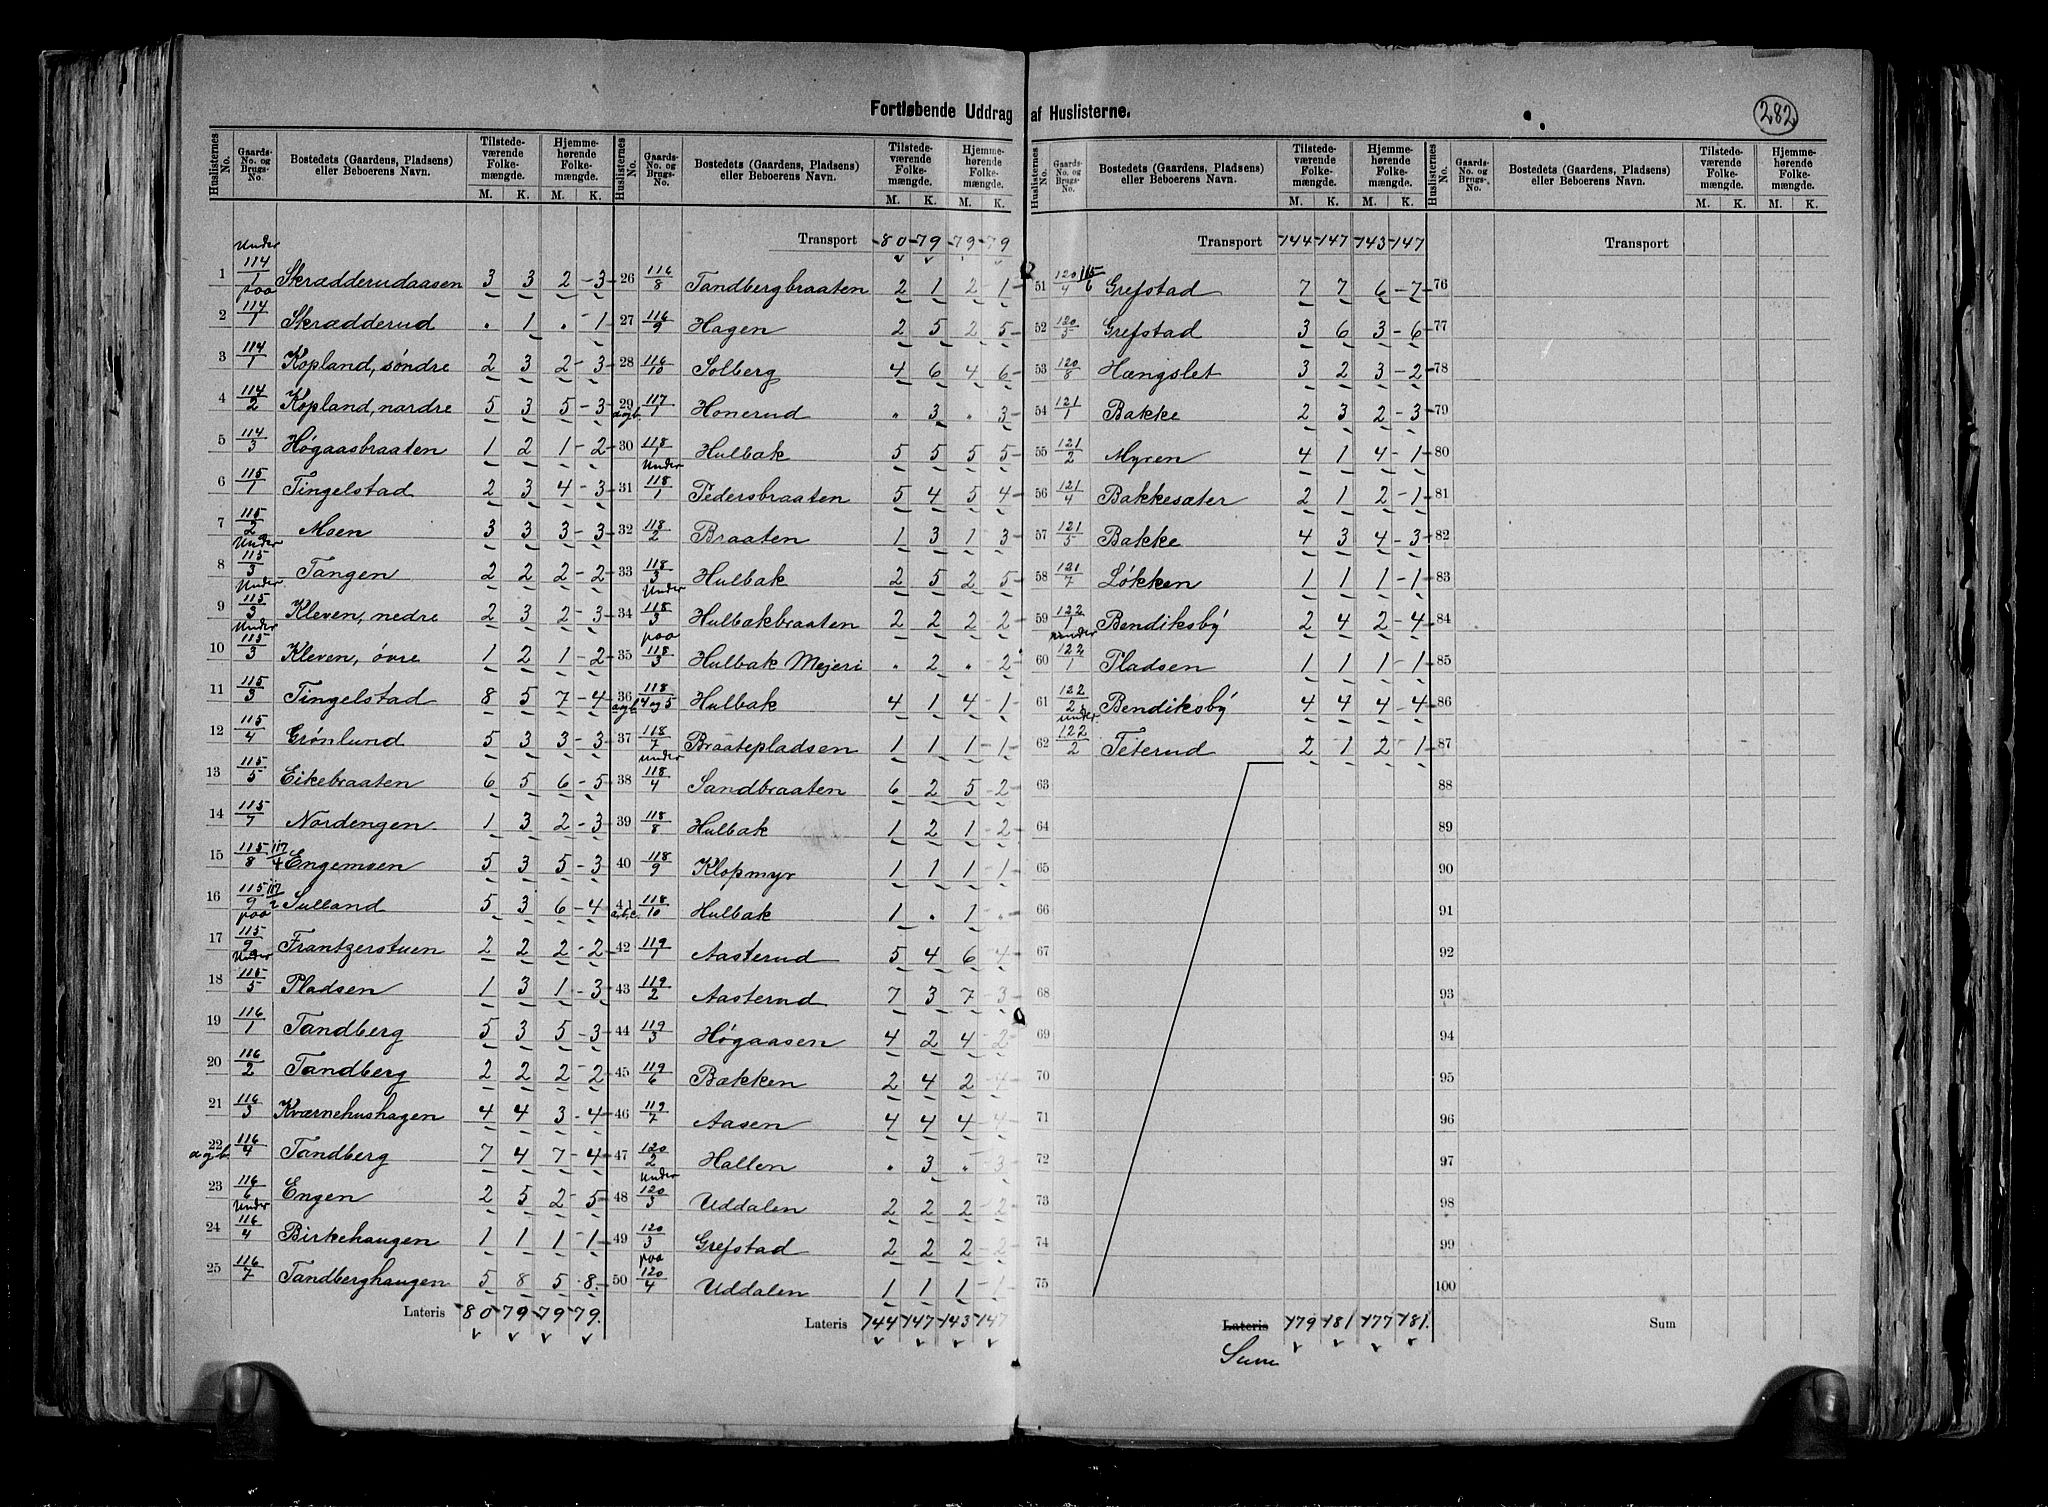 Fortløbende Uddrag af Huslisterne.
282
Huslisternes No. Gaards-No. og Brugs-No. Bostedets (Gaardens, Pladsens) eller Beboerens Navn. Tilstedeværende Folkemængde. M. K. Hjemmehørende Folkemængde. M. K.
1 Under 114/1 Skrædderudaasen 3 3 2 - 3
2 paa 114/1 Skrædderud . 1 . - 1
3 114/1 Kopland, søndre 2 3 2 - 3
4 114/2 Kopland, nordre 5 3 5 - 3
5 114/3 Høgaasbraaten 1 2 1 - 2
6 115/1 Tingelstad 2 3 4 - 3
7 115/2 Moen 3 3 3 - 3
8 Under 115/3 Tangen 2 2 2 - 2
9 Under 115/3 Kleven, nedre 2 3 2 - 3
10 Under 115/3 Kleven, øvre 1 2 1 - 2
11 115/3 Tingelstad 8 5 7 - 4
12 115/4 Grønlund 5 3 3 - 3
13 115/5 Eikebraaten 6 5 6 - 5
14 115/7 Nordengen 1 3 2 - 3
15 115/8 117/4 Engemoen 5 3 5 - 3
16 115/9 117/2 Sulland 5 3 6 - 4
17 paa 115/9 Frantzerstuen 2 2 2 - 2
18 Under 115/5 Pladsen 1 3 1 - 3
19 116/1 Tandberg 5 3 5 - 3
20 116/2 Tandberg 2 2 2 - 2
21 116/3 Kværnehushagen 4 4 3 - 4
22 a og b 116/4 Tandberg 7 4 7 - 4
23 116/6 Engen 2 5 2 - 5
24 Under 116/4 Birkehaugen 1 1 1 - 1
25 116/7 Tandberghaugen 5 8 5 - 8.
Lateris 80 79 79 79.
Huslisternes No. Gaards-No. og Brugs-No. Bostedets (Gaardens, Pladsens) eller Beboerens Navn. Tilstedeværende Folkemængde. M. K. Hjemmehørende Folkemængde. M. K.
Transport 80 79 79 79
26 116/8 Tandbergbraaten 2 1 2 - 1
27 116/9 Hagen 2 5 2 5
28 116/10 Solberg 4 6 4 6
29 a og b 117/1 Honerud . 3 . 3
30 118/1 Hulbak 5 5 5 5
31 Under 118/1 Pedersbraaten 5 4 5 4
32 118/2 Braaten 1 3 1 3
33 118/3 Hulbak 2 5 2 5
34 Under 118/3 Hulbakbraaten 2 2 2 - 2
35 paa 118/3 Hulbak Mejeri . 2 . - 2
36 a og b 118/4 og 5 Hulbak 4 1 4 - 1
37 118/7 Braatepladsen 1 1 1 - 1
38 under 118/4 Sandbraaten 6 2 5 - 2
39 118/8 Hulbak 1 2 1 - 2
40 118/9 Klopmyr 1 1 1 - 1
41 a,b,c 118/10 Hulbak 1 . 1 - .
42 119/1 Aasterud 5 4 6 4
43 119/2 Aasterud 7 3 7 - 3
44 119/3 Høgaasen 4 2 4 - 2
45 119/6 Bakken 2 4 2 - 4
46 119/7 Aasen 4 4 4 - 4
47 120/2 Hallen . 3 . - 3
48 Under 120/3 Uddalen 2 2 2 - 2
49 120/3 Grefstad 2 2 2 - 2
50 paa 120/4 Uddalen 1 1 1 - 1
Lateris 144 147 143 147
Huslisternes No. Gaards-No. og Brugs-No. Bostedets (Gaardens, Pladsens) eller Beboerens Navn. Tilstedeværende Folkemængde. M. K. Hjemmehørende Folkemængde. M. K.
Transport 144 147 143 147
51 120/4 115/6 Grefstad 7 7 6 - 7
52 120/5 Grefstad 3 6 3 - 6
53 120/8 Hængslet 3 2 3 - 2
54 121/1 Bakke 2 3 2 - 3
55 121/2 Myren 4 1 4 - 1
56 121/4 Bakkesæter 2 1 2 - 1
57 121/5 Bakke 4 3 4 - 3
58 121/7 Løkken 1 1 1 - 1
59 122/1 Bendiksby 2 4 2 - 4
60 under 122/1 Pladsen 1 1 1 - 1
61 122/2 Bendiksby 4 4 4 - 4
62 under 122/2 Teterud 2 1 2 - 1
63
64
65
66
67
68
69
70
71
72
73
74
75
Lateris 179 181 177 181.
Sum
Huslisternes No. Gaards-No. og Brugs-No. Bostedets (Gaardens, Pladsens) eller Beboerens Navn. Tilstedeværende Folkemængde. M. K. Hjemmehørende Folkemængde. M. K.
Transport
76
77
78
79
80
81
82
83
84
85
86
87
88
89
90
91
92
93
94
95
96
97
98
99
100
Sum